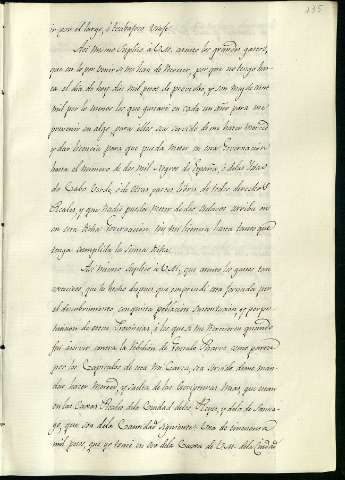 135
ir por el largo, i trabajoso viaje.
Asi mismo Suplico à V.M. atento los grandes gastos,
que en lo por venir se me han de ofrecer, por que no tengo has-
ta el dia de hoy dos mil pesos de provecho, y son mas de siete
mil por lo menos los que gastaré en cada un año para me
prevenir en algo para ellos sea servido de me hacer merced
y dar licencia para que pueda meter en esta Governacion
hasta el numero de dos mil Negros de España, ò delas Islas
de Cabo Verde, ò de otras partes libres de todos derechos
Reales, y que nadie pueda meter de dos Esclavos arriba en
en esta dicha Governacion, sin mi licencia hasta tanto que
tenga cumplida la suma dicha.
Asi mismo Suplico à V.M., que atento los gastos tan
excesivos, que he hecho despues que emprendi esta jornada por
el descubrimiento, conquista poblacion, sustentacion, y perpe-
tuacion de estas Provincias, à los que se me ofrecieron quando
fui à servir contra la Rebelion de Gonzalo Pizarro, como parece
por los Capitulos de esta mi Carta, sea servido de me man-
dar hacer Merced, y suelta de las Escripturas mias, que estan
en las Caxas Reales dela Ciudad delos Reyes, y dela de Santia-
go, que son dela Cantidad siguiente: Una de cincuenta
mil pesos, que yo tomé en oro dela Caxa de V.M. dela Ciudad